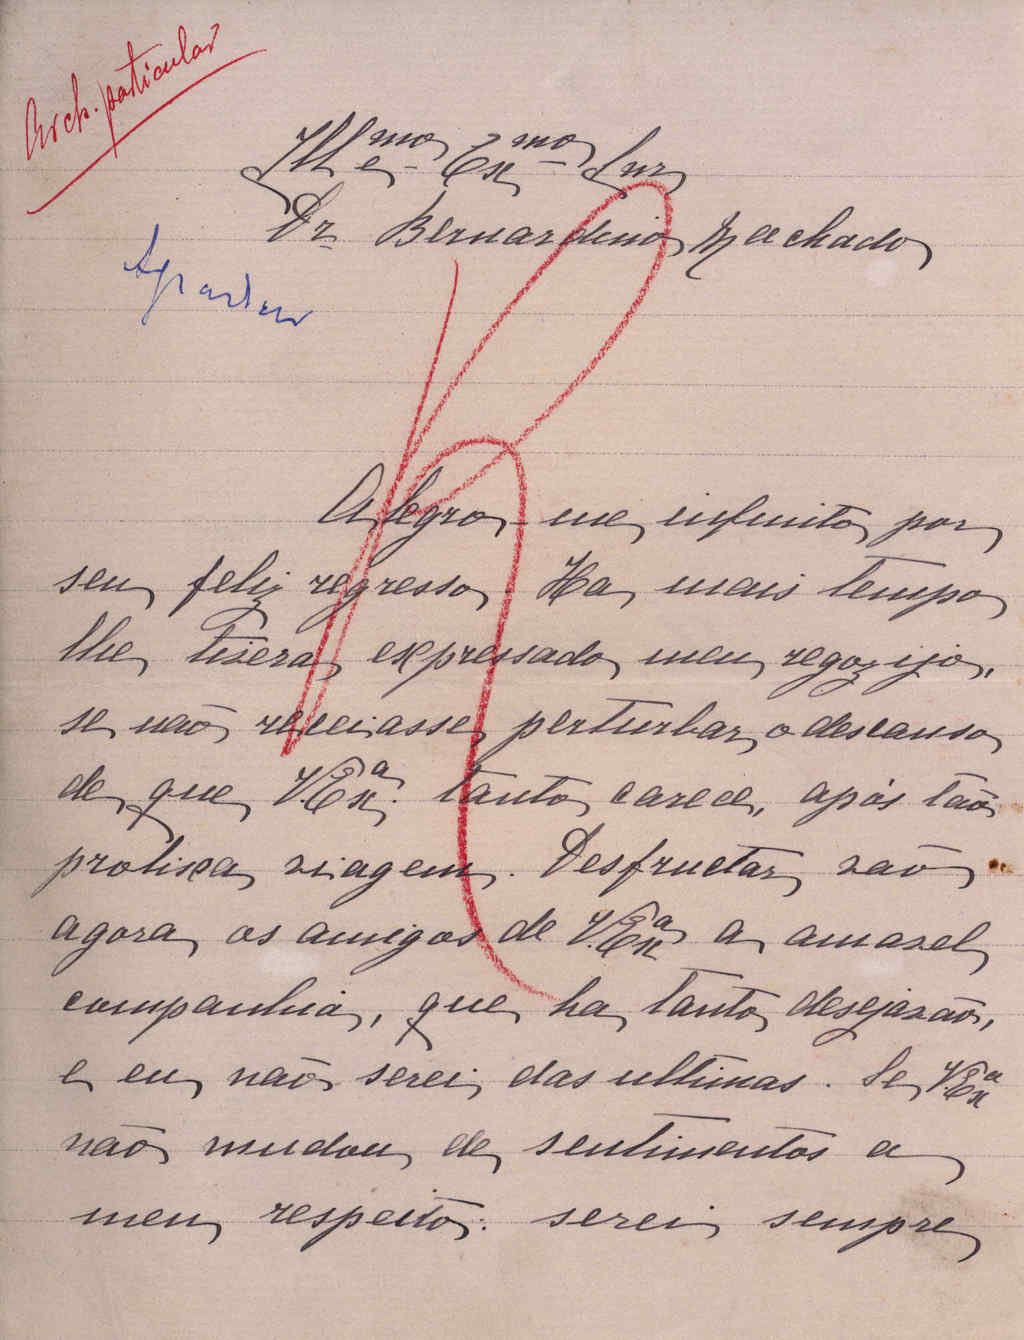 Arch. particular
Illmo e Exmo Snr
Dr Bernardino Machado
Agradecer
R
Alegro-me infinito por
seu feliz regresso. Ha mais tempo
lhe tivera expressado meu regozijo,
se não receiasse perturbar o descanso
de que V. Exa. tanto carece, após tão
prolixa viagem. Desfructar vão
agora os amigos de V. Exa a amavel
companhia, que ha tanto desejavão,
e eu não serei das ultimas. Se V. Exa
não mudou de sentimentos a
meu respeito: serei sempre